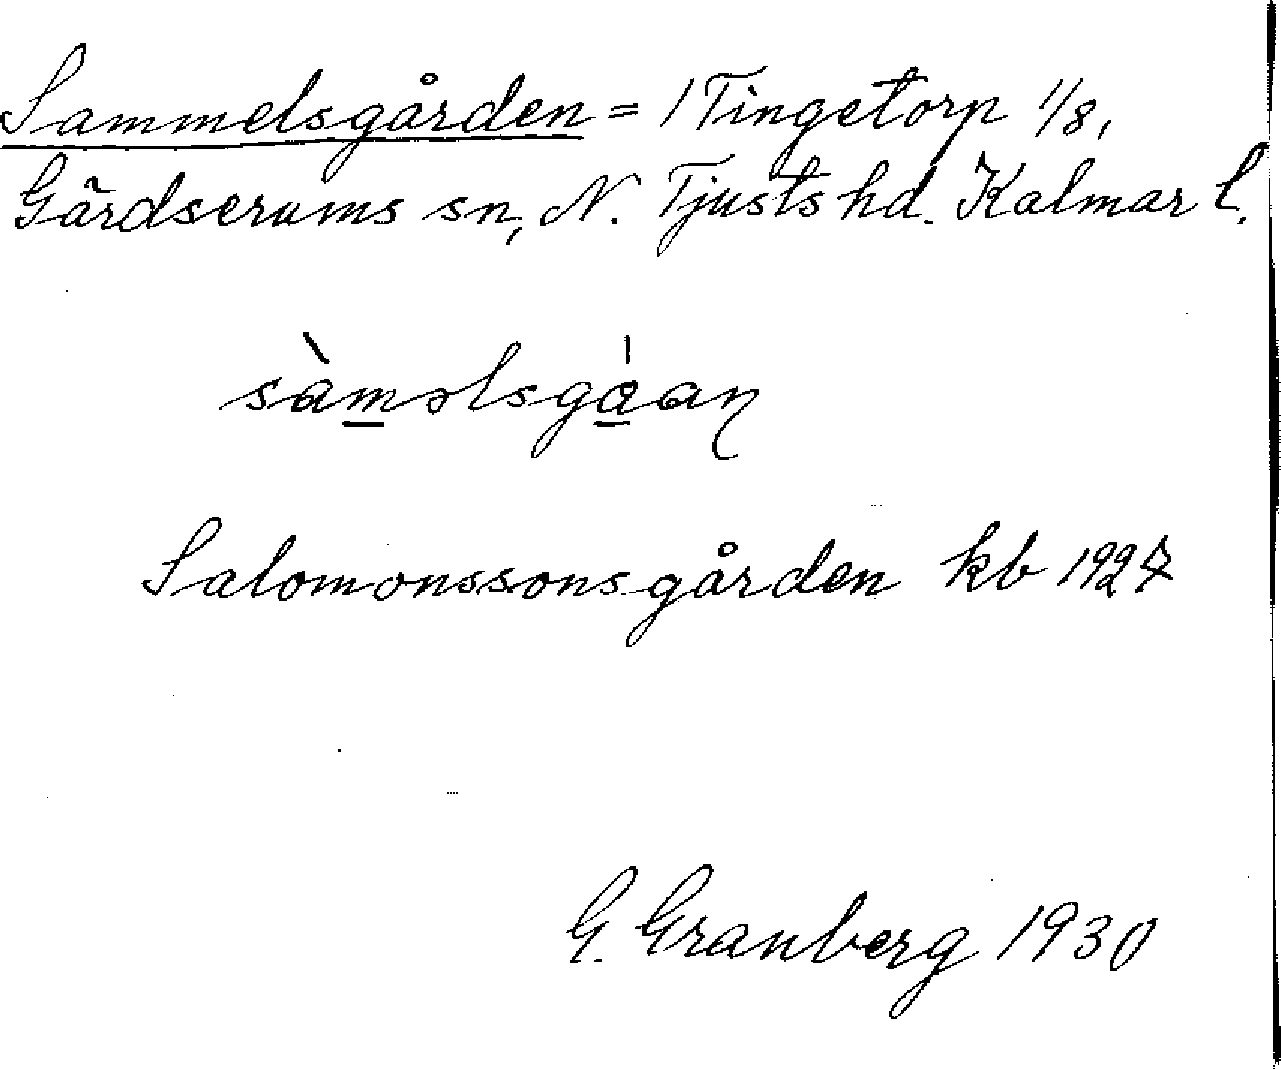 Sammelsgården = 1 Tingetorp 1/8,
Gärdserums sn, N. Tjusts hd. Kalmar l.
sàməlsgåan
Salomonssonsgården kb 1927
G. Granberg 1930